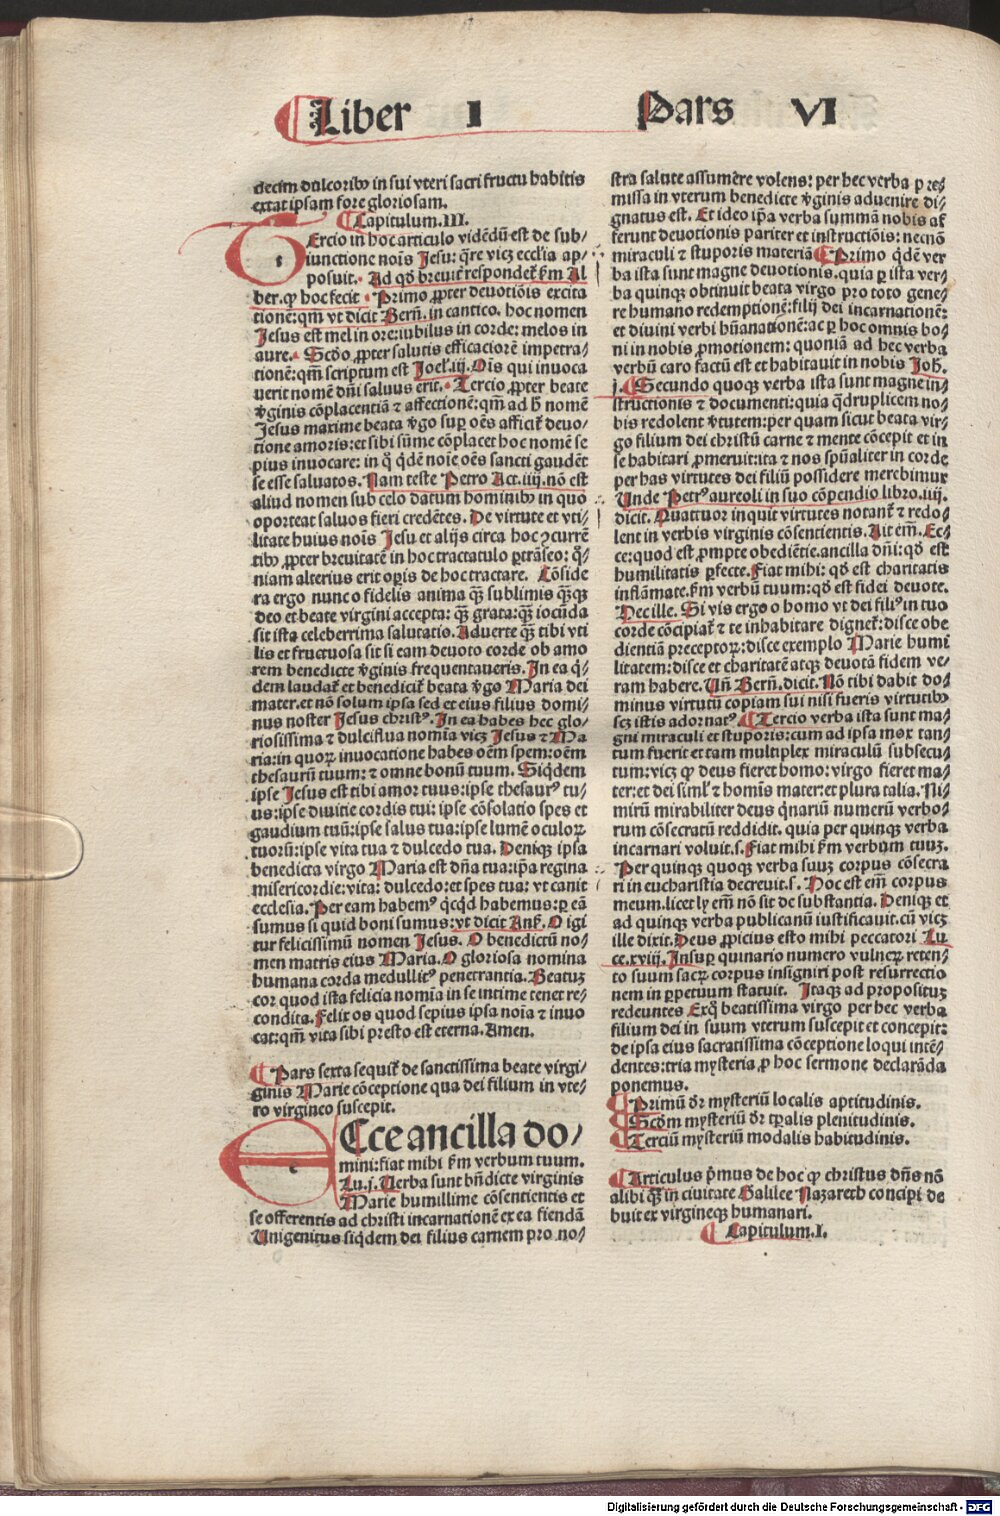 Liber I Pars VI
decim dulcoribꝰ in sui vteri sacri fructu habitis
extat ipsam fore gloriosam.
Capitulum.III.
TErcio in hoc articulo vidēdū est de sub/
iunctione noīs Jesu: q̄re vicꝫ eccl'ia ap/
posuit. Ad qd̓ breuit̓ respondet̓ ẜm Al
ber. ꝙ hoc fecit Primo ꝓpter deuotiōis excita
tionē: qm̄ vt dicit Bern̄. in cantico. hoc nomen
Jesus est mel in ore: iubilus in corde: melos in
aure. Scd̓o ꝓpter salutis efficaciorē impetra/
tionē: qm̄ scriptum est Joel̓.iij. Oīs qui inuoca
uerit nomē dn̄i saluus erit. Tercio ꝓpter beate
v̓ginis cōplacentiā ⁊ affectionē: qm̄ ad h̓ nomē
Jesus maxime beata v̓go suꝑ oēs afficit̓ deuo/
tione amoris: et sibi sūme cōplacet hoc nomē se
pius inuocare: in q̊ q̓dē noīe oēs sancti gaudēt
se esse saluatos. Nam teste Petro Act.iiij. nō est
aliud nomen sub celo datum hominibꝰ in quo
oporteat saluos fieri credētes. De virtute et vti/
litate huius noīs Jesu et alijs circa hoc ꝯcurrē
tibꝰ ꝓpter breuitatē in hoc tractatulo ꝑtrāseo: q̊/
niam alterius erit oꝑis de hoc tractare. Cōside
ra ergo nunc o fidelis anima qꝫ̄ sublimis qꝫ̄qꝫ
deo et beate virgini accepta: qꝫ̄ grata: qꝫ̄ iocūda
sit ista celeberrima salutatio. Aduerte qꝫ̄ tibi vti
lis et fructuosa sit si eam deuoto corde ob amo
rem benedicte v̓ginis frequentaueris. In ea q̓/
dem laudat̓ et benedicit̓ beata v̓go Maria dei
mater. et nō solum ipsa sed et eius filius domi/
nus noster Jesus christꝰ. In ea habes hec glo/
riosissima ⁊ dulciflua nomīa vicꝫ Jesus ⁊ Ma
ria: in quoꝝ inuocatione habes oēm spem: oēm
thesaurū tuum: ⁊ omne bonū tuum. Siq̓dem
ipse Jesus est tibi amor tuus: ipse thesaurꝰ tu/
us: ipse diuitie cordis tui: ipse cōsolatio spes et
gaudium tuū: ipse salus tua: ipse lumē oculoꝝ
tuorū: ipse vita tua ⁊ dulcedo tua. Deniqꝫ ipsa
benedicta virgo Maria est dn̄a tua: ip̄a regina
misericordie: vita: dulcedo: et spes tua: vt canit
ecclesia. Per eam habemꝰ q̓cq̓d habemus: ꝑ eā
sumus si quid boni sumus: vt dicit Ans̓. O igi
tur felicissimū nomen Jesus. O benedictū no/
men matris eius Maria. O gloriosa nomina
humana corda medullitꝰ penetrantia. Beatuꝫ
cor quod ista felicia nomīa in se intime tenet re/
condita. Felix os quod sepius ipsa noīa ⁊ inuo
cat: qm̄ vita sibi presto est eterna. Amen.
Pars sexta sequit̓ de sanctissima beate virgi/
ginis Marie cōceptione qua dei filium in vte/
ro virgineo suscepit.
ECce ancilla do/
mini: fiat mihi ẜm verbum tuum.
Lu.j. Uerba sunt bn̄dicte virginis
Marie humillime cōsentientis et
se offerentis ad christi incarnationē ex ea fiendā
Unigenitus siq̓dem dei filius carnem pro no/
stra salute assumēre volens: per hec verba p̄re
missa in vterum benedicte v̓ginis aduenire di/
gnatus est. Et ideo ip̄a verba summā nobis af
ferunt deuotionis pariter et instructiōis: necnō
miraculi ⁊ stuporis materiā Primo q̓dē ver
ba ista sunt magne deuotionis. quia ꝑ ista ver/
ba quinqꝫ obtinuit beata virgo pro toto gene/
re humano redemptionē: filij dei incarnationē:
et diuini verbi hūanationē: ac ꝑ hoc omnis bo/
ni in nobis ꝓmotionem: quoniā ad hec verba
verbū caro factū est et habitauit in nobis Joh̓.
j. Secundo quoqꝫ verba ista sunt magne in/
structionis ⁊ documenti: quia q̓druplicem no/
bis redolent v̓tutem: per quam sicut beata vir/
go filium dei christū carne ⁊ mente cōcepit et in
se habitari ꝓmeruit: ita ⁊ nos spūaliter in corde
per has virtutes dei filiū possidere merebimur
Unde Petrꝰ aureoli in suo cōpendio libro.iiij.
dicit. Quattuor inquit virtutes notant̓ ⁊ redo/
lent in verbis virginis cōsentientis. Ait em̄. Ec/
ce: quod est ꝓmpte obediētie. ancilla dn̄i: qd̓ est
humilitatis ꝑfecte. Fiat mihi: qd̓ est charitatis
inflāmate. ẜm verbū tuum: qd̓ est fidei deuote.
Hec ille. Si vis ergo o homo vt dei filiꝰ in tuo
corde cōcipiat̓ ⁊ te inhabitare dignet̓: disce obe
dientiā preceptoꝝ: disce exemplo Marie humi
litatem: disce et charitatē atqꝫ deuotā fidem ve/
ram habere. Un̄ Bern̄. dicit. Nō tibi dabit do/
minus virtutū copiam sui nisi fueris virtutibꝰ
scꝫ istis adornatꝰ. Tercio verba ista sunt ma/
gni miraculi et stuporis: cum ad ipsa mox tan/
tum fuerit et tam multiplex miraculū subsecu/
tum: vicꝫ ꝙ deus fieret homo: virgo fieret ma/
ter: et dei siml̓ ⁊ homīs mater: et plura talia. Ni/
mirū mirabiliter deus q̓nariū numerū verbo/
rum cōsecratū reddidit. quia per quinqꝫ verba
incarnari voluit. s. Fiat mihi ẜm verbum tuuꝫ.
Per quinqꝫ quoqꝫ verba suuꝫ corpus cōsecra
ri in eucharistia decreuit. s. Hoc est em̄ corpus
meum. licet ly em̄ nō sit de substantia. Deniqꝫ et
ad quinqꝫ verba publicanū iustificauit. cū vicꝫ
ille dixit. Deus ꝓpicius esto mihi peccatori Lu
ce.xviij. Insuꝑ quinario numero vulneꝝ reten/
to suum sacꝝ corpus insigniri post resurrectio
nem in ꝑpetuum statuit. Itaqꝫ ad propositum
redeuntes Exq̊ beatissima virgo per hec verba
filium dei in suum vterum suscepit et concepit:
de ipsa eius sacratissima cōceptione loqui intē/
dentes: tria mysteria ꝓ hoc sermone declarāda
ponemus.
Primū dr̄ mysteriū localis aptitudinis.
Scd̓m mysteriū dr̄ tꝑalis plenitudinis.
Terciū mysteriū modalis habitudinis.
Articulus pͥmus de hoc ꝙ christus dn̄s nō
alibi qꝫ̄ in ciuitate Galilee Nazareth concipi de
buit ex virgineqꝫ humanari.
Capitulum.I.
Digitalisierung gefördert durch die Deutsche Forschungsgemeinschaft - DFG